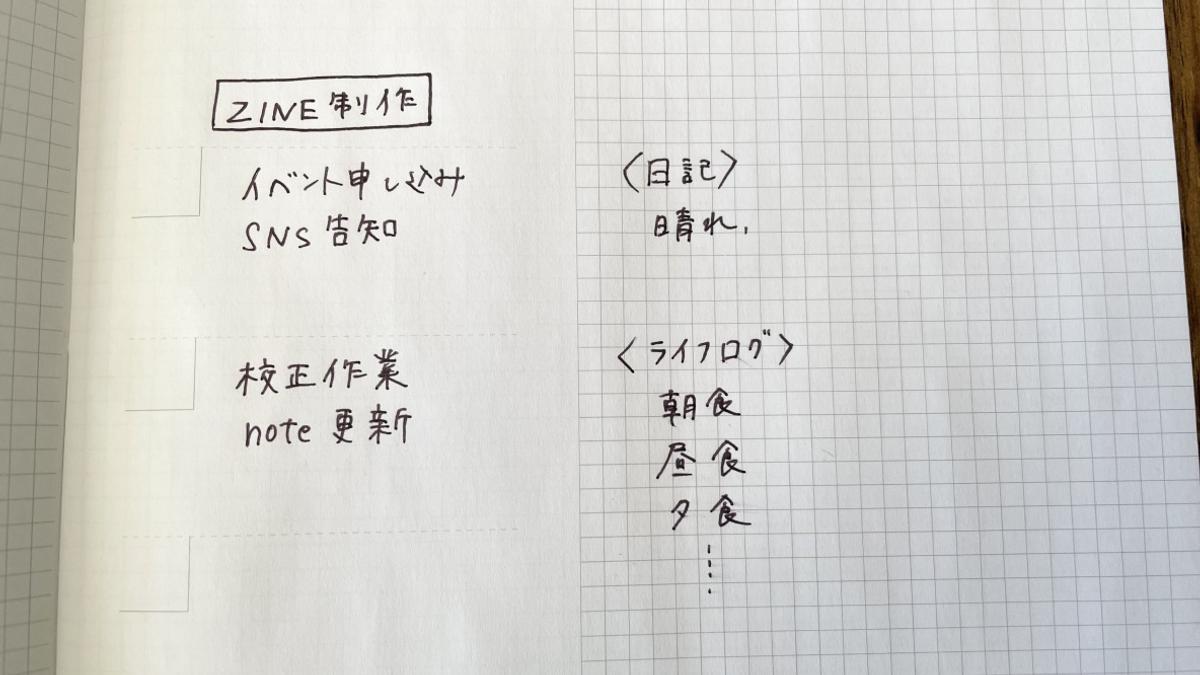 ZINE制作
イベント申し込み
SNS告知
校正作業
note更新
〈日記〉
晴れ,
〈ライフログ〉
朝食
昼食
夕食
⋮